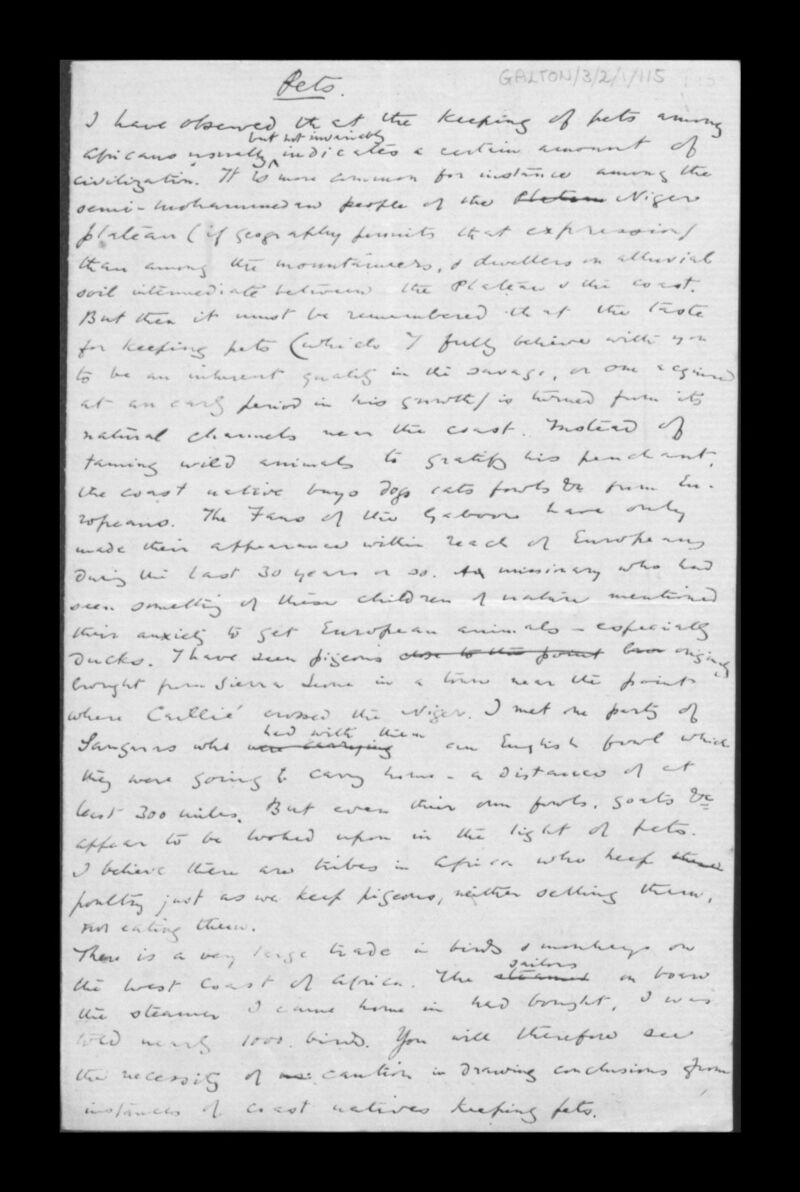 GALTON/3/2/1/115
Pets.
I have observed that the keeping of pets among
but not invariably
Africans usually indicates a certain amount of
civilization. It is more common for instance among the
semi-mohammedan people of the Plateau Niger
plateau (if geography permits that expression)
than among the mountaineers, & dwellers on alluvial
soil intermediate between the Plateau & the coast.
But then it must be remembered that the taste
for keeping pets (which I fully believe with you
to be an inherent quality in the savage, or one acquired
at an early period in his growth) is turned from its
natural channels near the coast. Instead of
taming wild animals to gratify his penchant,
the coast native buys dogs cats fowls &c from Eu-
ropeans. The Fans of the Gaboon have only
made their appearance within reach of Europeans
during the last 30 years or so. A missionary who had
seen something of these children of nature mentioned
their anxiety to get European animals - especially
ducks. I have seen pigeons close to the point originally
brought from Sierra Leone in a town near the point
where Caillié crossed the Niger. I met one party of
had with them
Sangaras who were carrying an English fowl which
they were going to carry home - a distance of at
least 300 miles. But even their own fowls, goats &c
appear to be looked upon in the light of pets.
I believe there are tribes in Africa who keep their
poultry just as we keep pigeons, neither selling them,
nor eating them.
There is a very large trade in birds & monkeys on
sailors
the West Coast of Africa. The steamer on board
the steamer I came home in had bought, I was
told nearly 1000 birds. You will therefore see
the necessity of caution in drawing conclusions from
instances of coast natives keeping pets.